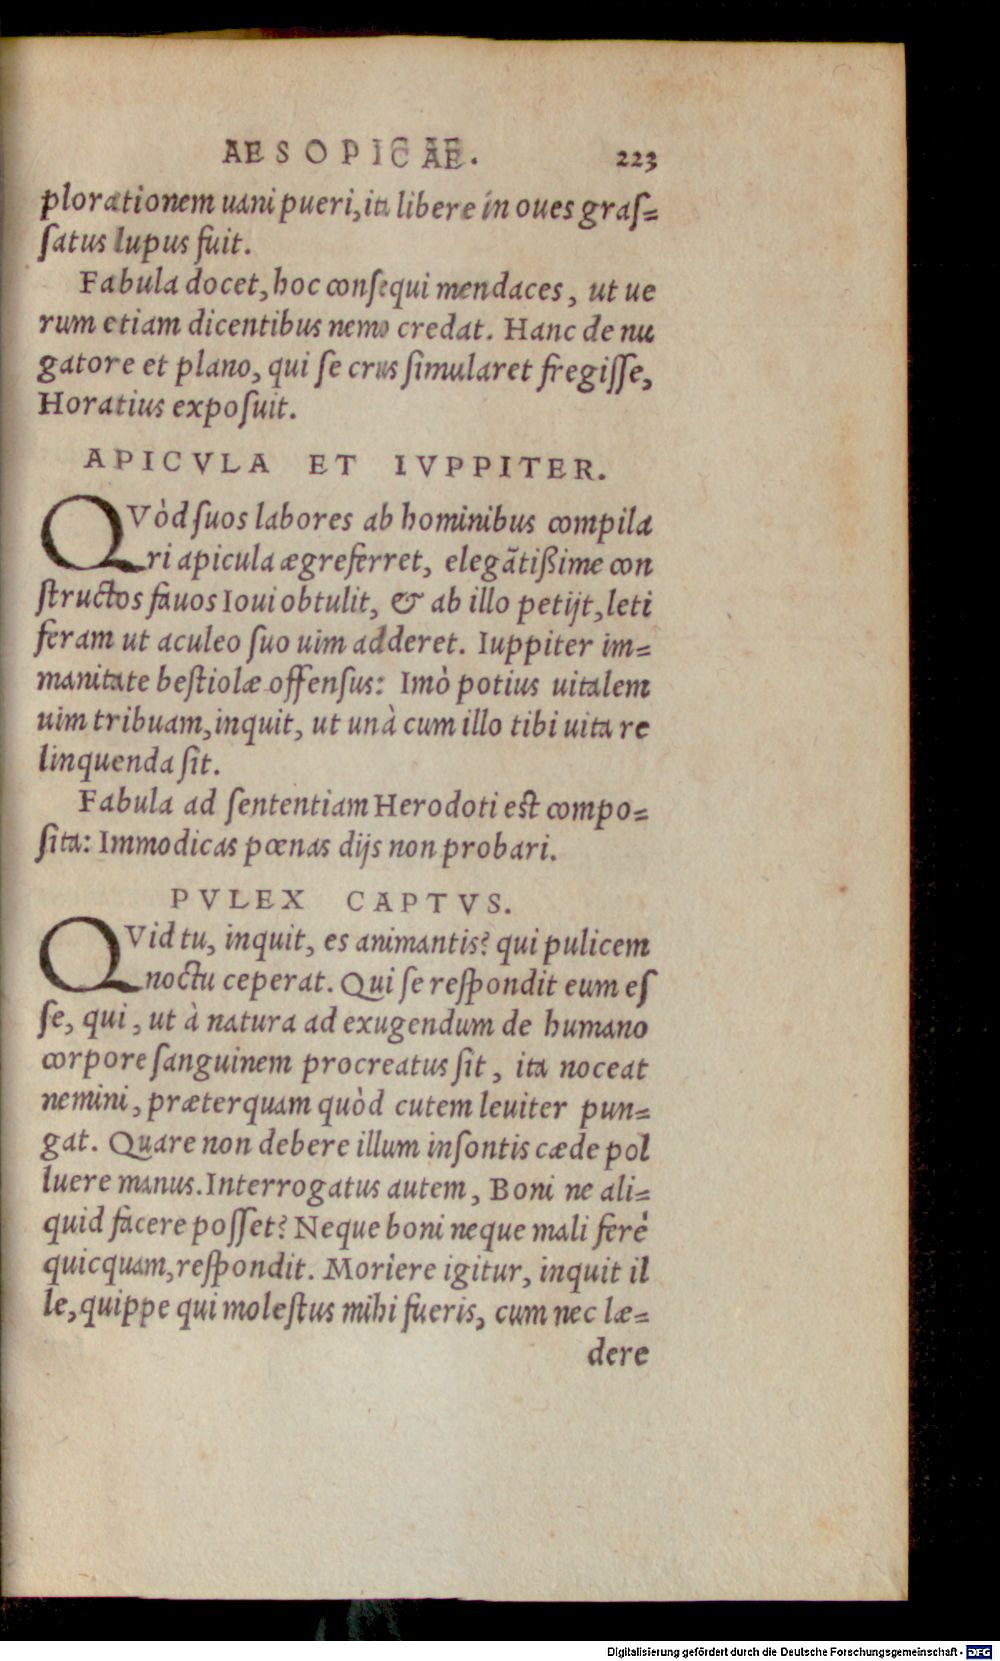 AESOPICAE. 223
plorationem uani pueri, ita libere in oues graſ=
ſatus lupus fuit.
Fabula docet, hoc conſequi mendaces, ut ue
rum etiam dicentibus nemo credat. Hanc de nu
gatore et plano, qui ſe crus ſimularet fregiſſe,
Horatius expoſuit.
APICVLA ET IVPPITER.
QVòd ſuos labores ab hominibus compila
ri apicula ægre ferret, elegãtißime con
ſtructos fauos Ioui obtulit, & ab illo petijt, leti
feram ut aculeo ſuo uim adderet. Iuppiter im=
manitate beſtiolæ offenſus: Imò potius uitalem
uim tribuam, inquit, ut unà cum illo tibi uita re
linquenda ſit.
Fabula ad ſententiam Herodoti eſt compo=
ſita: Immodicas pœnas dijs non probari.
PVLEX CAPTVS.
QVid tu, inquit, es animantis? qui pulicem
noctu ceperat. Qui ſe reſpondit eum eſ
ſe, qui, ut à natura ad exugendum de humano
corpore ſanguinem procreatus ſit, ita noceat
nemini, præterquam quòd cutem leuiter pun=
gat. Quare non debere illum inſontis cæde pol
luere manus. Interrogatus autem, Boni ne ali=
quid facere poſſet? Neque boni neque mali ferè
quicquam, reſpondit. Morière igitur, inquit il
le, quippe qui moleſtus mihi fueris, cum nec læ=
dere
Digitalisierung gefördert durch die Deutsche Forschungsgemeinschaft - DFG